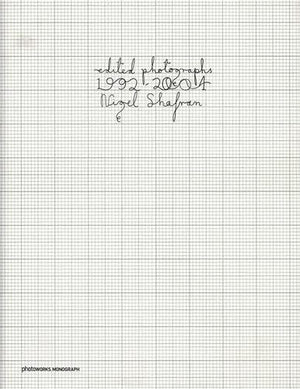 edited photographs
1992-2004
Nigel Shafran
photoworks MONOGRAPH